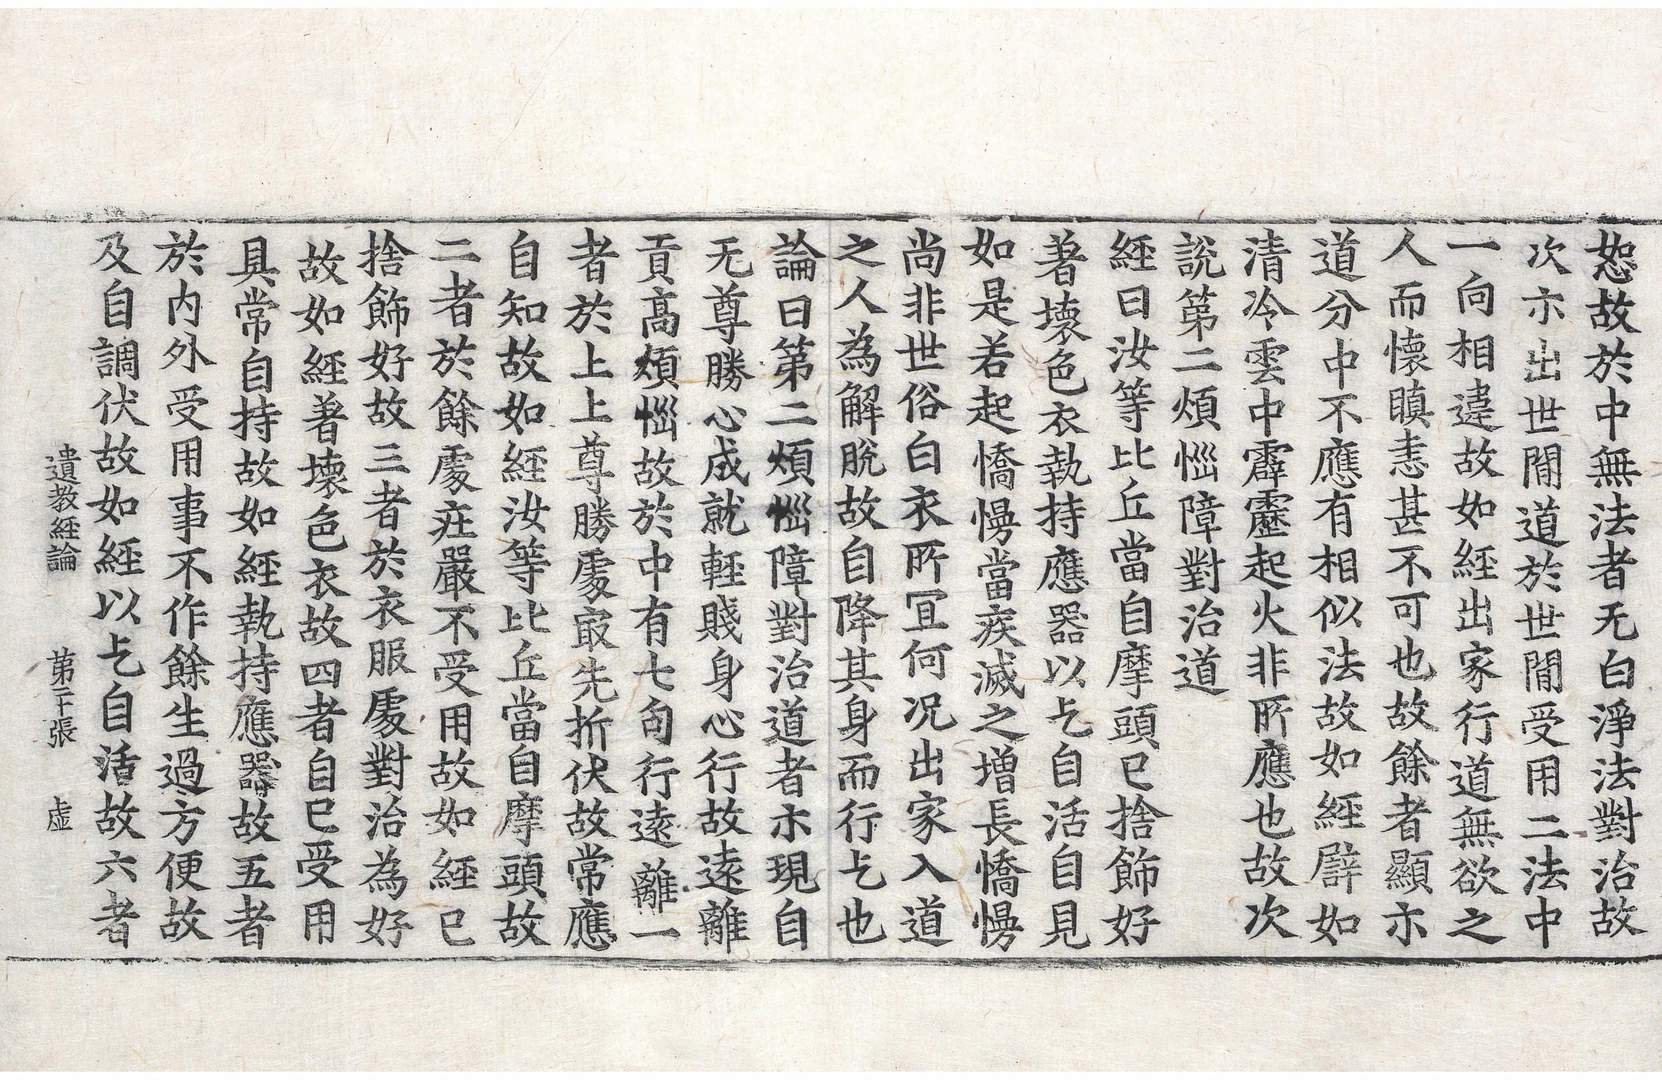 恕故於中無法者无白淨法對治故
次亦出世間道於世間受用二法中
一向相違故如經出家行道無欲之
人而懷瞋恚甚不可也故餘者顯亦
道分中不應有相似法故如經譬如
清冷雲中霹靂起火非所應也故次
說第二煩惱障對治道
經曰汝等比丘當自摩頭已捨飾好
著壞色衣執持應器以乞自活自見
如是若起憍慢當疾滅之增長憍慢
尚非世俗白衣所冝何况出家入道
之人為解脫故自降其身而行乞也
論曰第二煩惱障對治道者亦現自
无尊勝心成就輕賤身心行故遠離
貢高煩惱故於中有七句行遠離一
者於上上尊勝處㝡先折伏故常應
自知故如經汝等比丘當自摩頭故
二者於餘處疘嚴不受用故如經已
捨飾好故三者於衣服處對治為好
故如經著壞色衣故四者自已受用
具常自持故如經執持應器故五者
於內外受用事不作餘生過方便故
及自調伏故如經以乞自活故六者
遺教經論 第二十張 虛